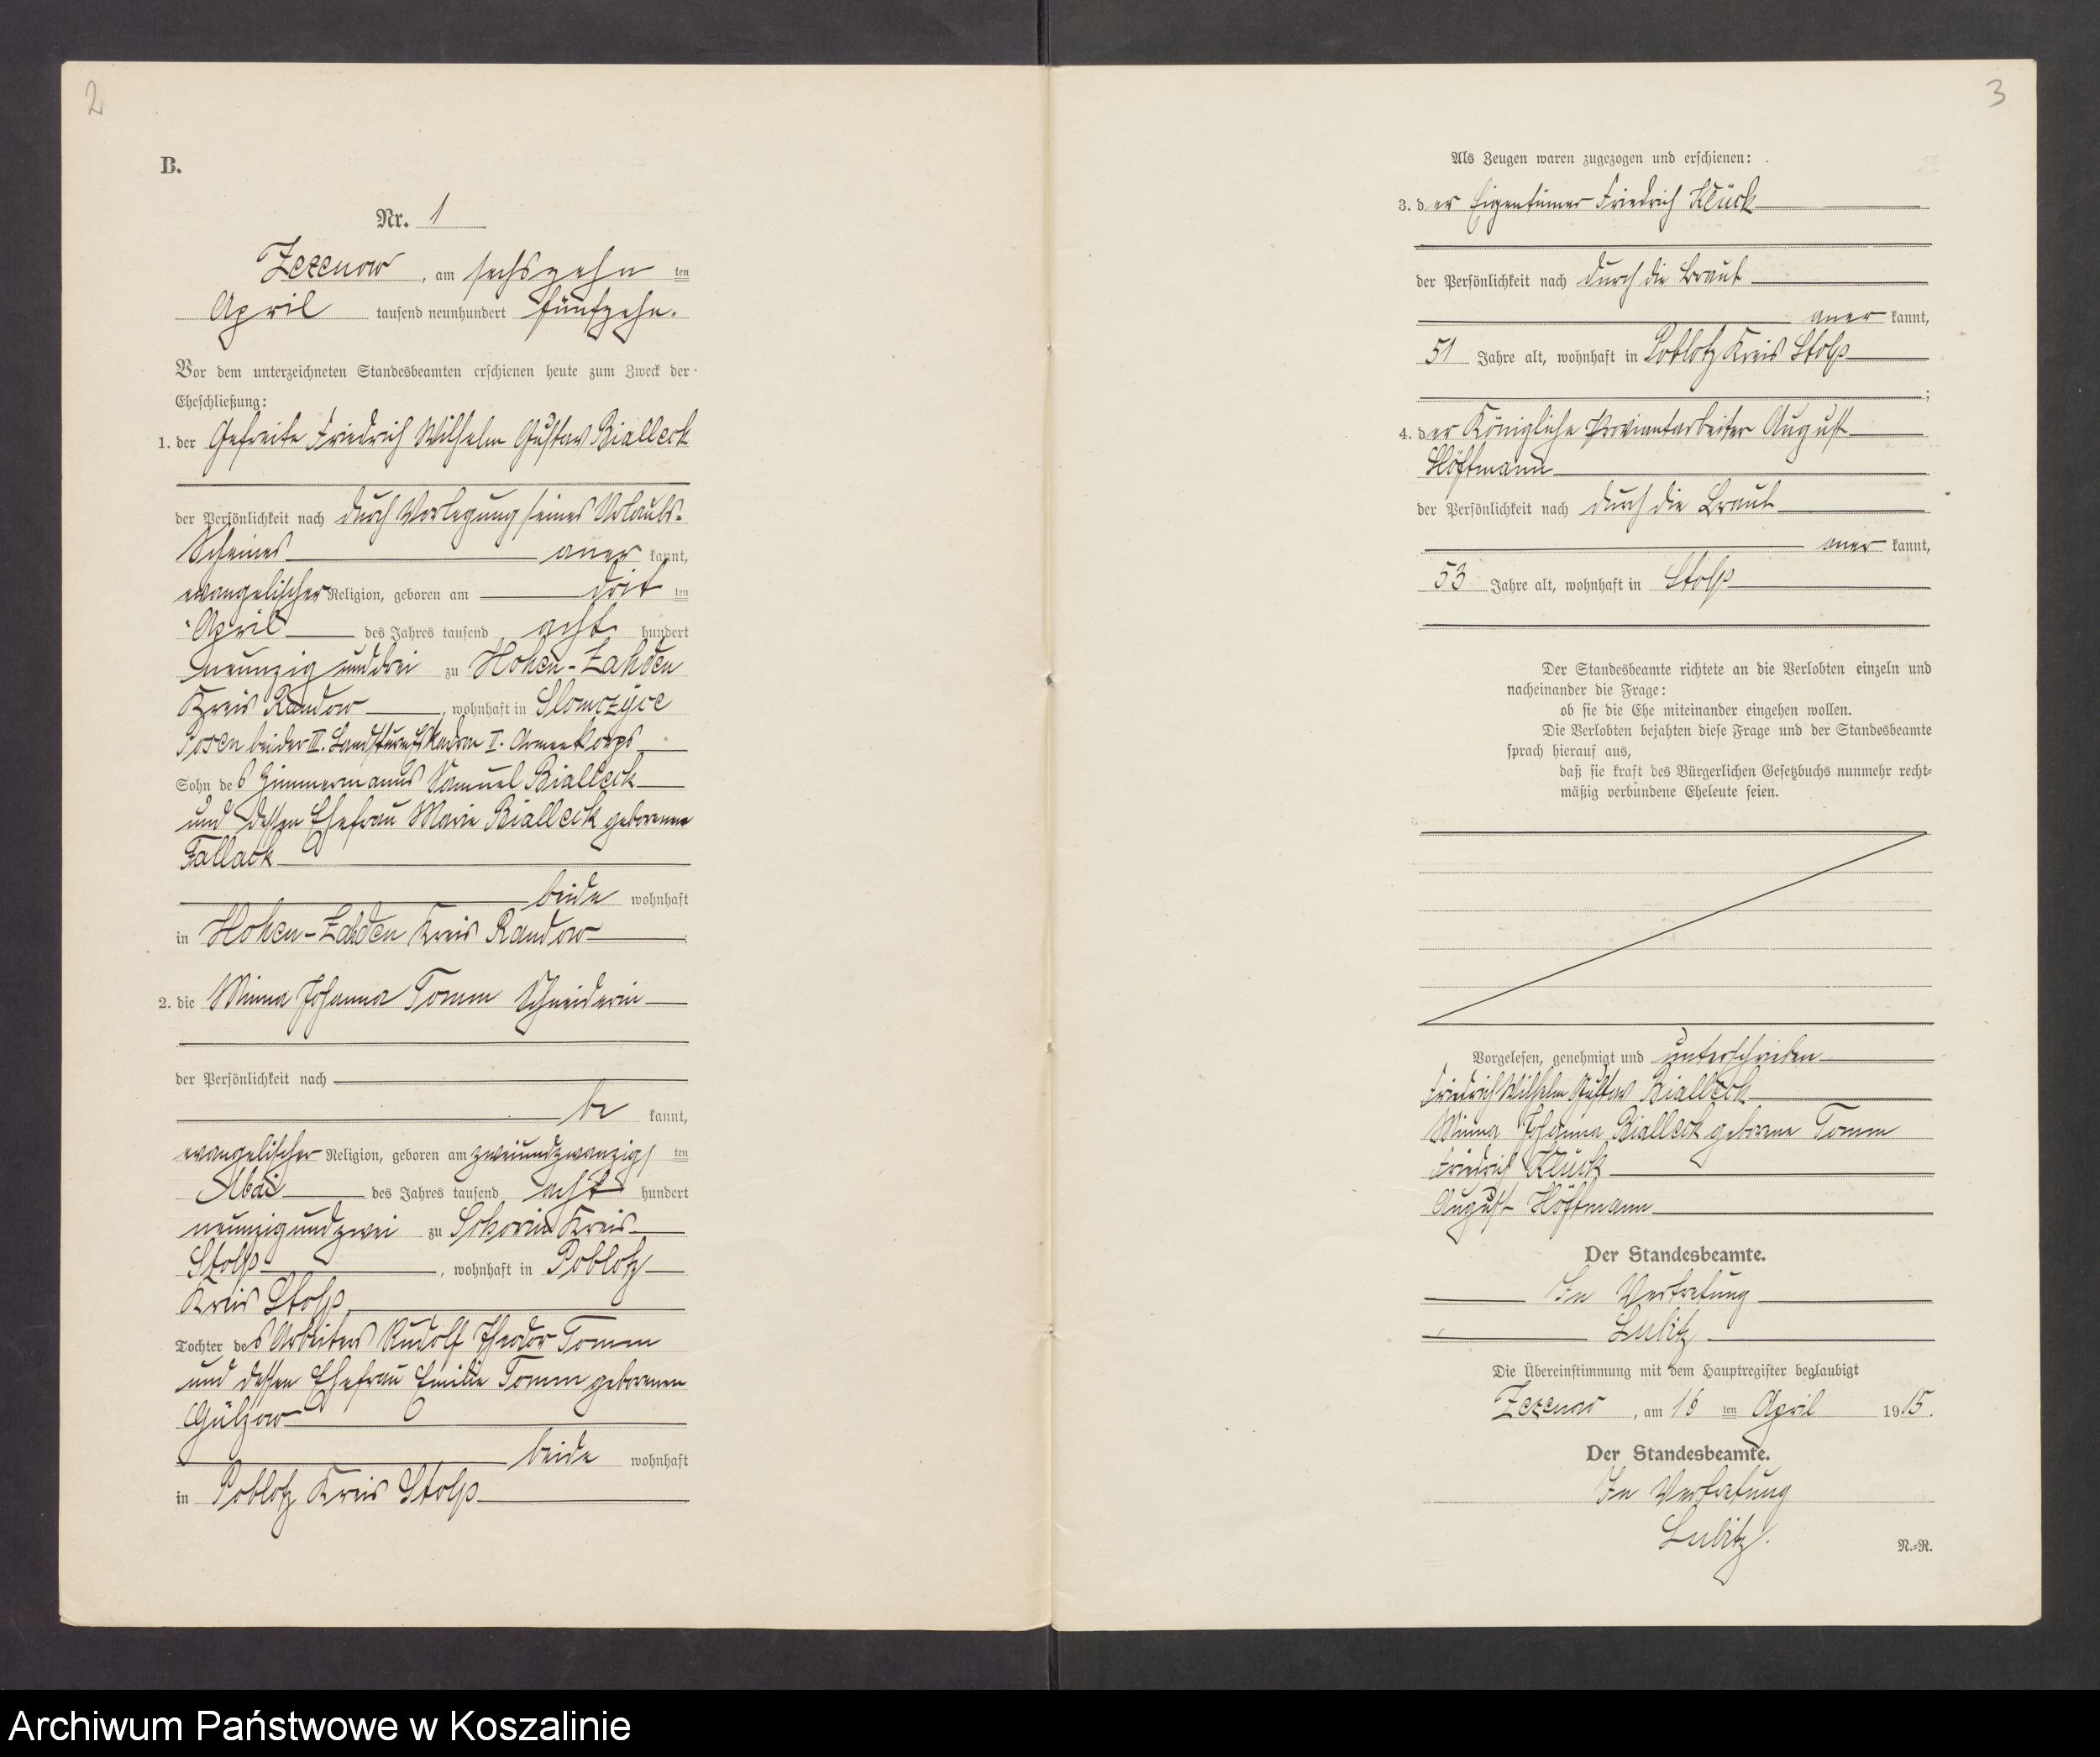 2
B.
Nr. 1
Zezenow, am sechszehn ten
April tausend neunhundert fünfzehn.
Vor dem unterzeichneten Standesbeamten erschienen heute zum Zweck der
Eheschließung:
1. der Gefreite Friedrich Wilhelm Gustav Bialleck
der Persönlichkeit nach durch Vorlegung seines Urlaubs-
Scheines aner kannt,
evangelischer Religion, geboren am drit ten
April des Jahres tausend acht hundert
neunzig und drei zu Hohen-Zahden
Kreis Randow, wohnhaft in Slomczyce
Posen bei der II. Landsturmeskadron I. Armeekorps
Sohn des Zimmermanns Samuel Bialleck
und dessen Ehefrau Marie Bialleck geborenen
Fallack
beide wohnhaft
in Hohen-Zahden Kreis Randow;
2. die Minna Johanna Tomm Schneiderin
der Persönlichkeit nach
be kannt,
evangelischer Religion, geboren am zweiundzwanzigs ten
Mai des Jahres tausend acht hundert
neunzig und zwei zu Schorin Kreis
Stolp, wohnhaft in Poblotz
Kreis Stolp,
Tochter des Arbeiters Rudolf Theodor Tomm
und dessen Ehefrau Emilie Tomm geborenen
Gülzow
beide wohnhaft
in Poblotz Kreis Stolp
3
Als Zeugen waren zugezogen und erschienen:
3. der Eigentümer Friedrich Klück
der Persönlichkeit nach durch die Braut
aner kannt,
51 Jahre alt, wohnhaft in Poblotz Kreis Stolp
;
4. der Königliche Proviantarbeiter August
Höftmann
der Persönlichkeit nach durch die Braut
aner kannt,
53 Jahre alt, wohnhaft in Stolp
Der Standesbeamte richtete an die Verlobten einzeln und
nacheinander die Frage:
ob sie die Ehe miteinander eingehen wollen.
Die Verlobten bejahten diese Frage und der Standesbeamte
sprach hierauf aus,
daß sie kraft des Bürgerlichen Gesetzbuchs nunmehr recht-
mäßig verbundene Eheleute seien.
Vorgelesen, genehmigt und unterschrieben
Friedrich Wilhelm Gustav Bialleck
Minna Johanna Bialleck geborene Tomm
Friedrich Klück
August Höftmann
Der Standesbeamte.
In Vertretung
Lubitz
Die Übereinstimmung mit dem Hauptregister beglaubigt
Zezenow, am 16 ten April 1915.
Der Standesbeamte.
In Vertretung
Lubitz.
N.-R.
Archiwum Państwowe w Koszalinie